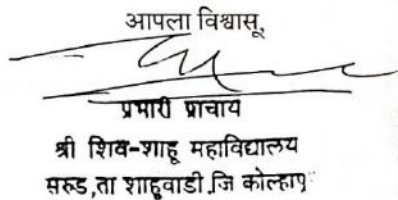 आपला विश्वासू,
प्रभारी प्राचार्य
श्री शिव-शाहू महाविद्यालय
सरुड,ता शाहुवाडी,जि कोल्हापूर